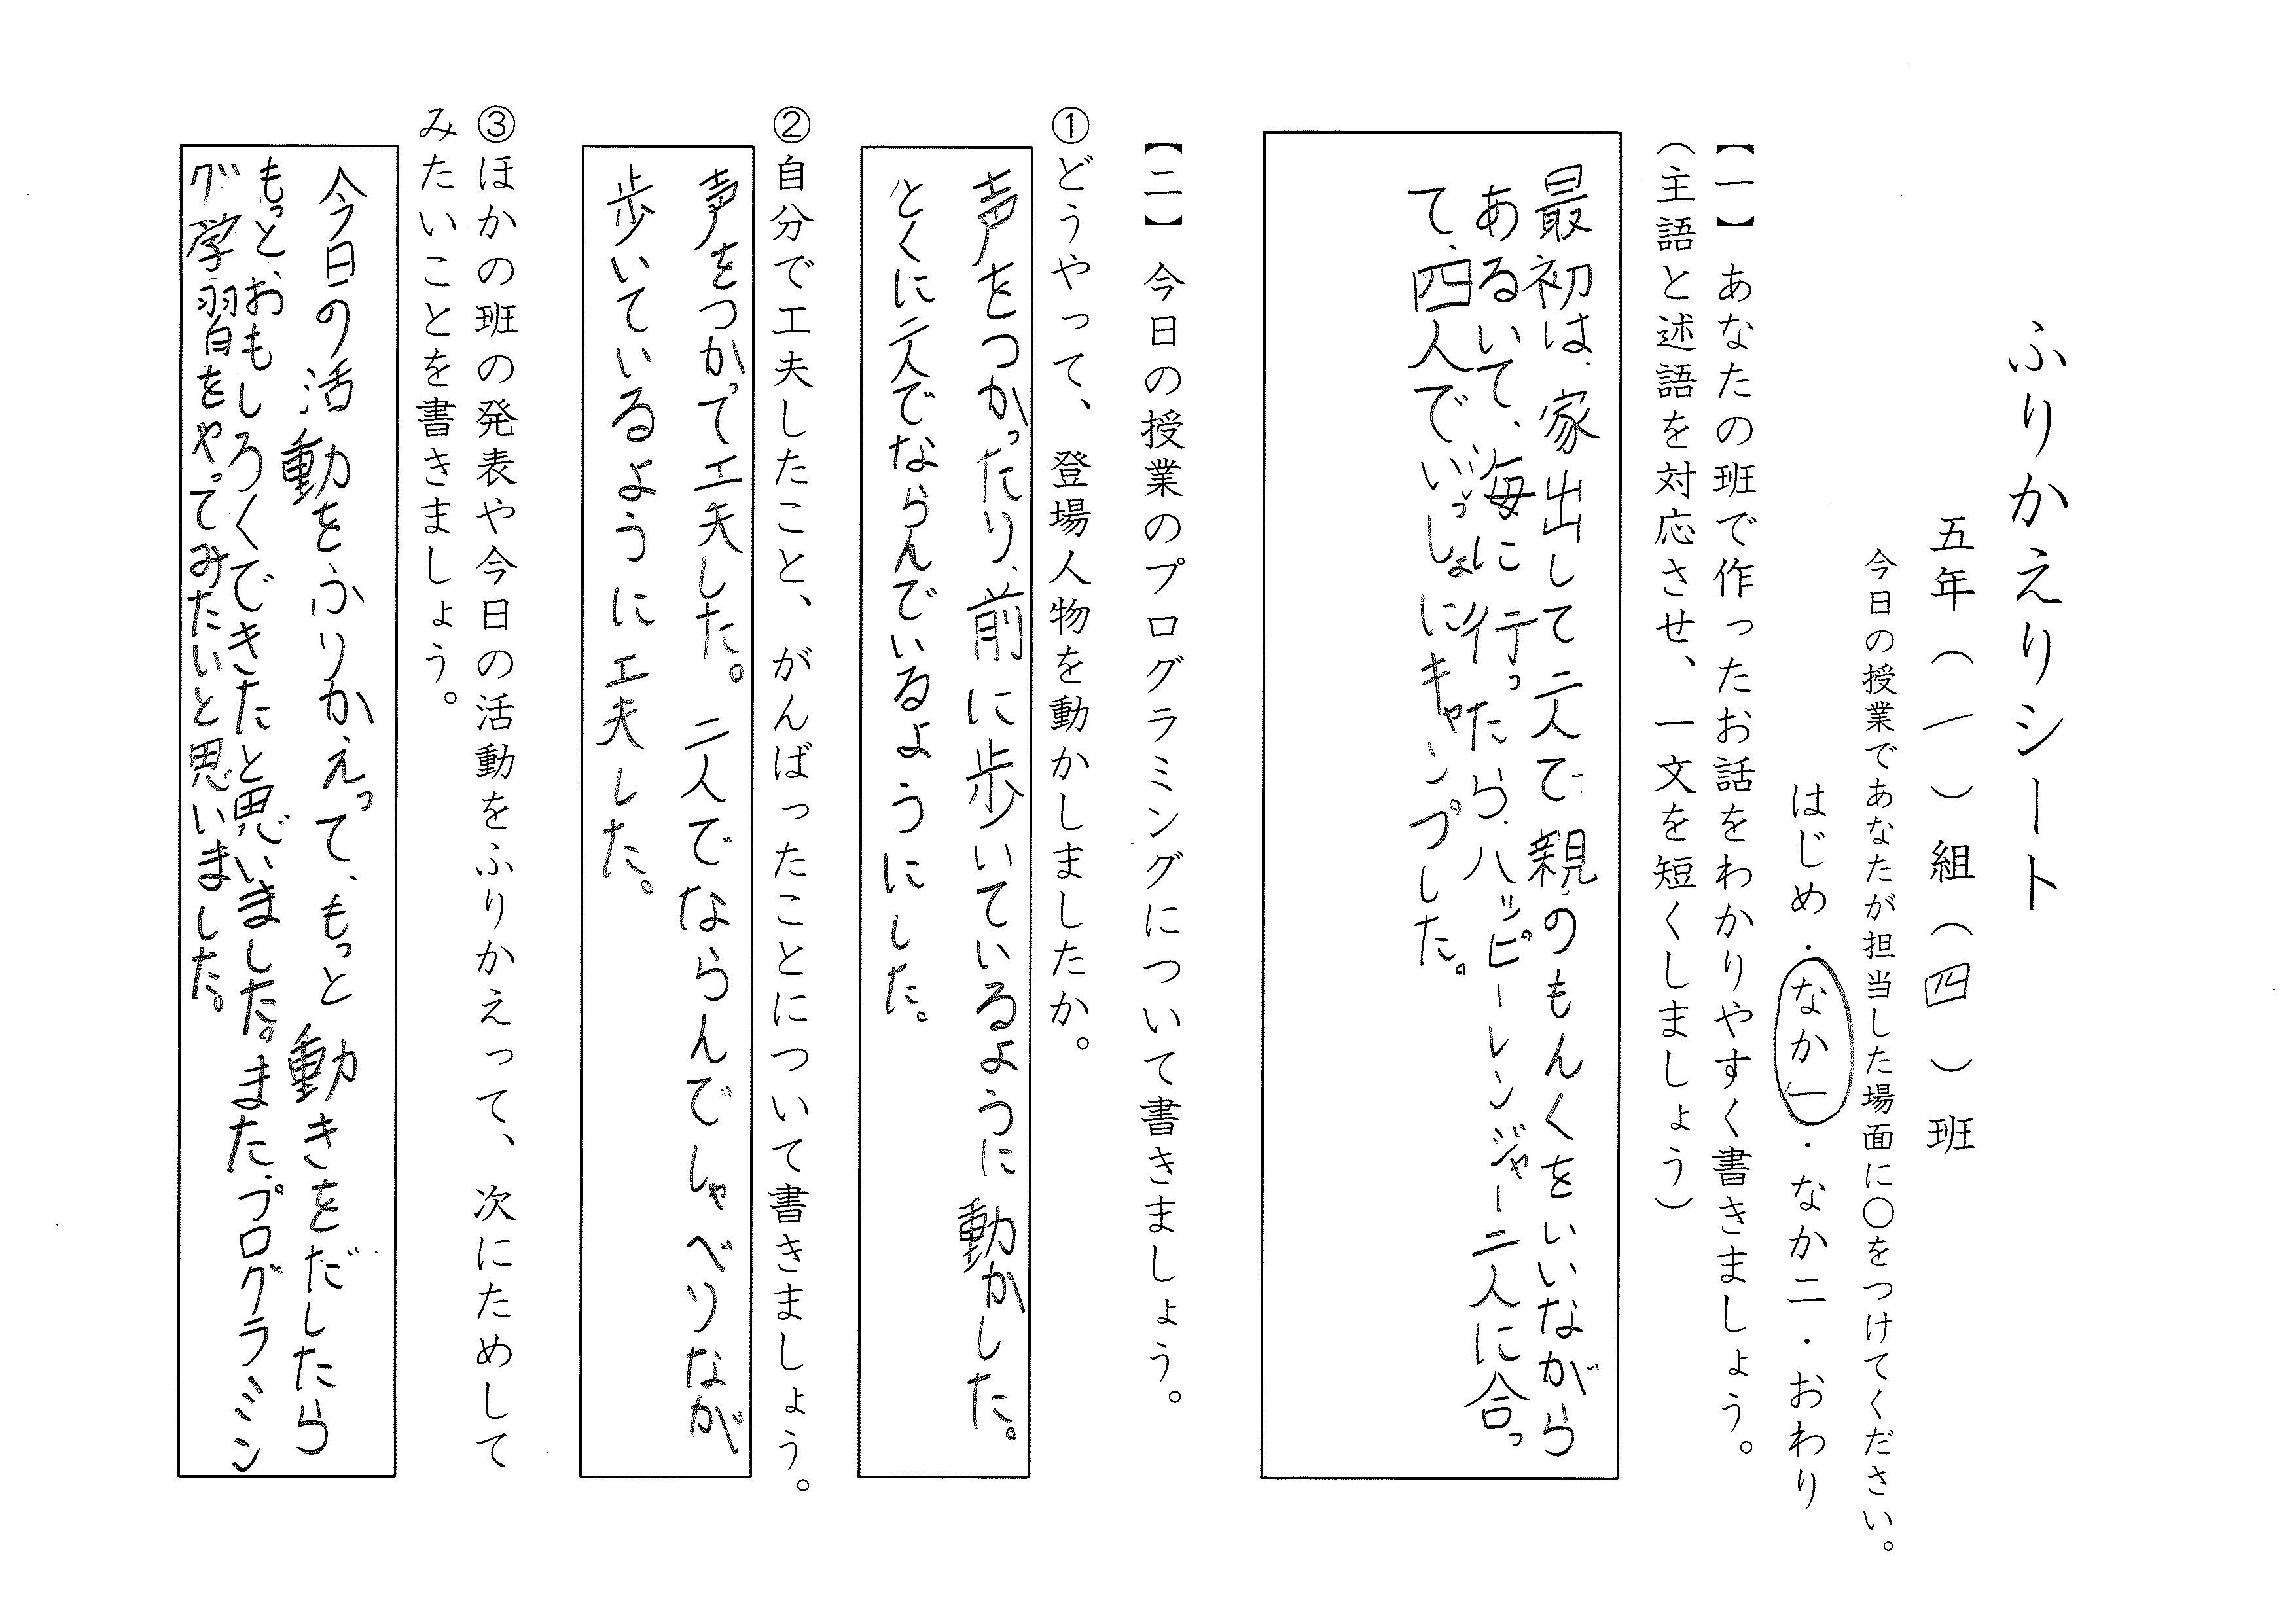 ふりかえりシート
五年（一）組（四）班
今日の授業であなたが担当した場面に○をつけてください。
はじめ・なか一・なか二・おわり
【一】あなたの班で作ったお話をわかりやすく書きましょう。
（主語と述語を対応させ、一文を短くしましょう）
最初は、家出して二人で親のもんくをいいながら
あるいて、海に行ったら、ハッピーレンジャー二人に合っ
て、四人でいっしょにキャンプした。
【二】今日の授業のプログラミングについて書きましょう。
①どうやって、登場人物を動かしましたか。
声をつかったり、前に歩いているように動かした。
とくに二人でならんでいるようにした。
②自分で工夫したこと、がんばったことについて書きましょう。
声をつかって工夫した。二人でならんでしゃべりなが
歩いているように工夫した。
③ほかの班の発表や今日の活動をふりかえって、次にためして
みたいことを書きましょう。
今日の活動をふりかえって、もっと動きをだしたら
もっと、おもしろくできたと思いました。また、プログラミン
グ学習をやってみたいと思いました。